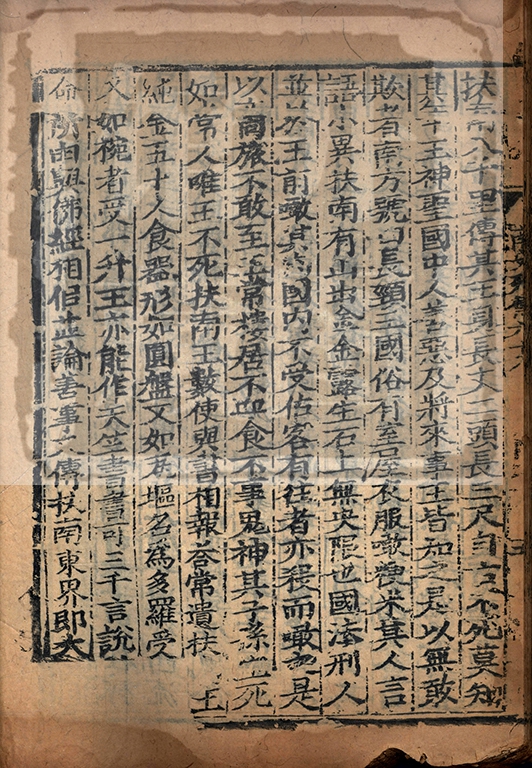 扶南八千里傳其王身長丈二頭長三尺自古不死莫知
其年王神聖國中人善惡及將來事王皆知之是以無敢
欺者南方號曰長頸王國俗有室屋衣服噉粳米其人言
語小異扶南有山出金金露生石上無央限也國法刑人
並於王前噉其肉國内不受估客有往者亦殺而噉之是
以商旅不敢至王常樓居不血食不事鬼神其子孫生死
如常人唯王不死扶南王數使與書相報荅常遺扶王
純金五十人食器形如圓盤又如瓦塸名爲多羅受
又如椀者受一升王亦能作天竺書書可三千言說
命所由與佛經相似並論善事又傳扶南東界即大